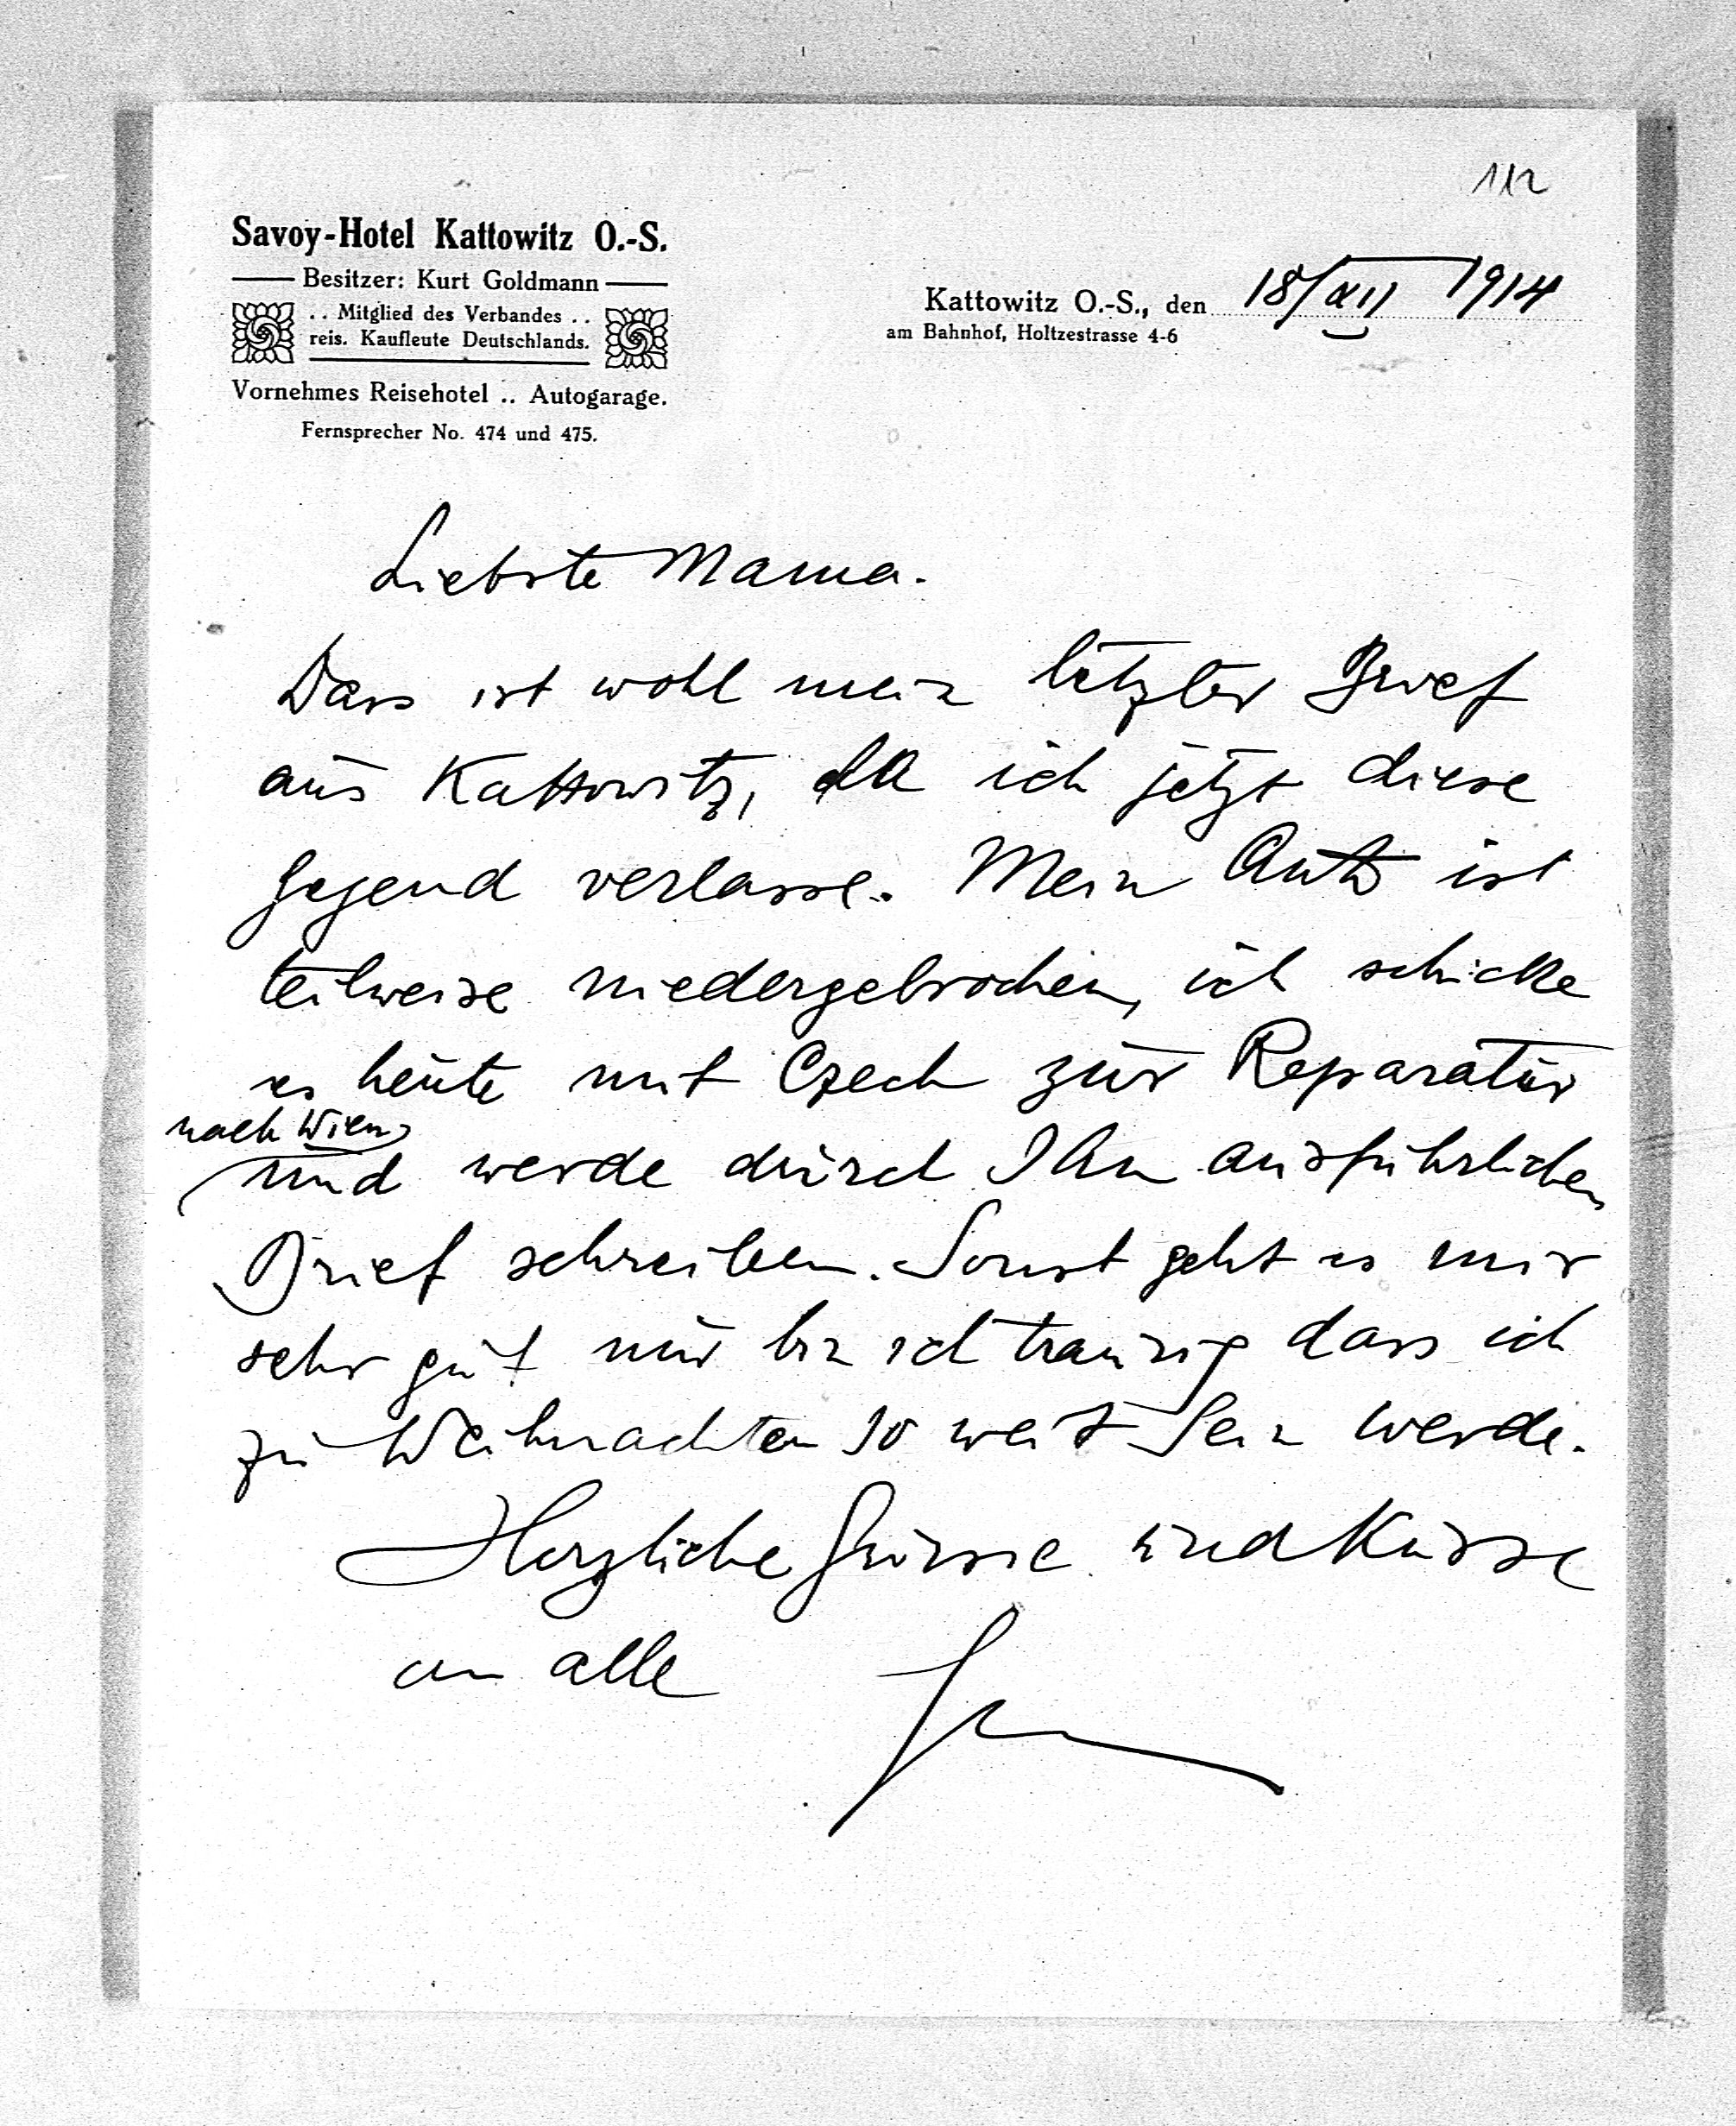 112
Savoy-Hotel Kattowitz O.-S.
Besitzer: Kurt Goldmann
.. Mitglied des Verbandes ..
reis. Kaufleute Deutschlands.
Vornehmes Reisehotel .. Autogarage.
Fernsprecher No. 474 und 475.
Kattowitz O.-S., den 18/XII 1914
am Bahnhof, Holtzestrasse 4-6
Liebste Mama.
Dass ist wohl mein letzter Brief
aus Kattowitz, da ich jetzt diese
Gegend verlasse. Mein Auto ist
teilweise niedergebrochen, ich schicke
es heute mit Czech zur Reparatur
nach Wien
und werde durch Ihn ausführlichen
Brief schreiben. Sonst geht es mir
sehr gut nur bin ich traurig dass ich
zu Weihnachten so weit sein werde.
Herzliche Grüsse und Küsse
an alle